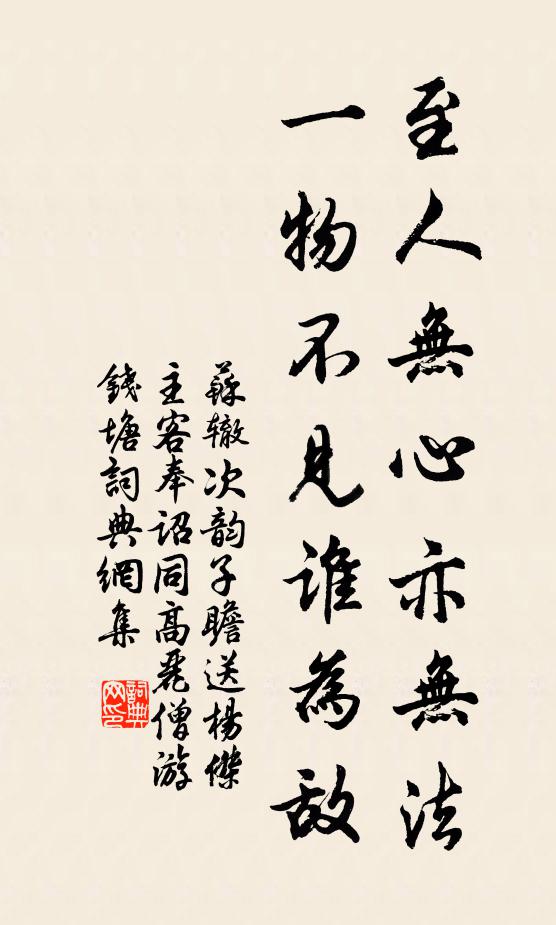 至人無心亦無法
一物不見誰為敌
蘇辙次韵子瞻送楊傑
主客奉诏同高麗僧游
錢塘詞典網集
詞典
网印